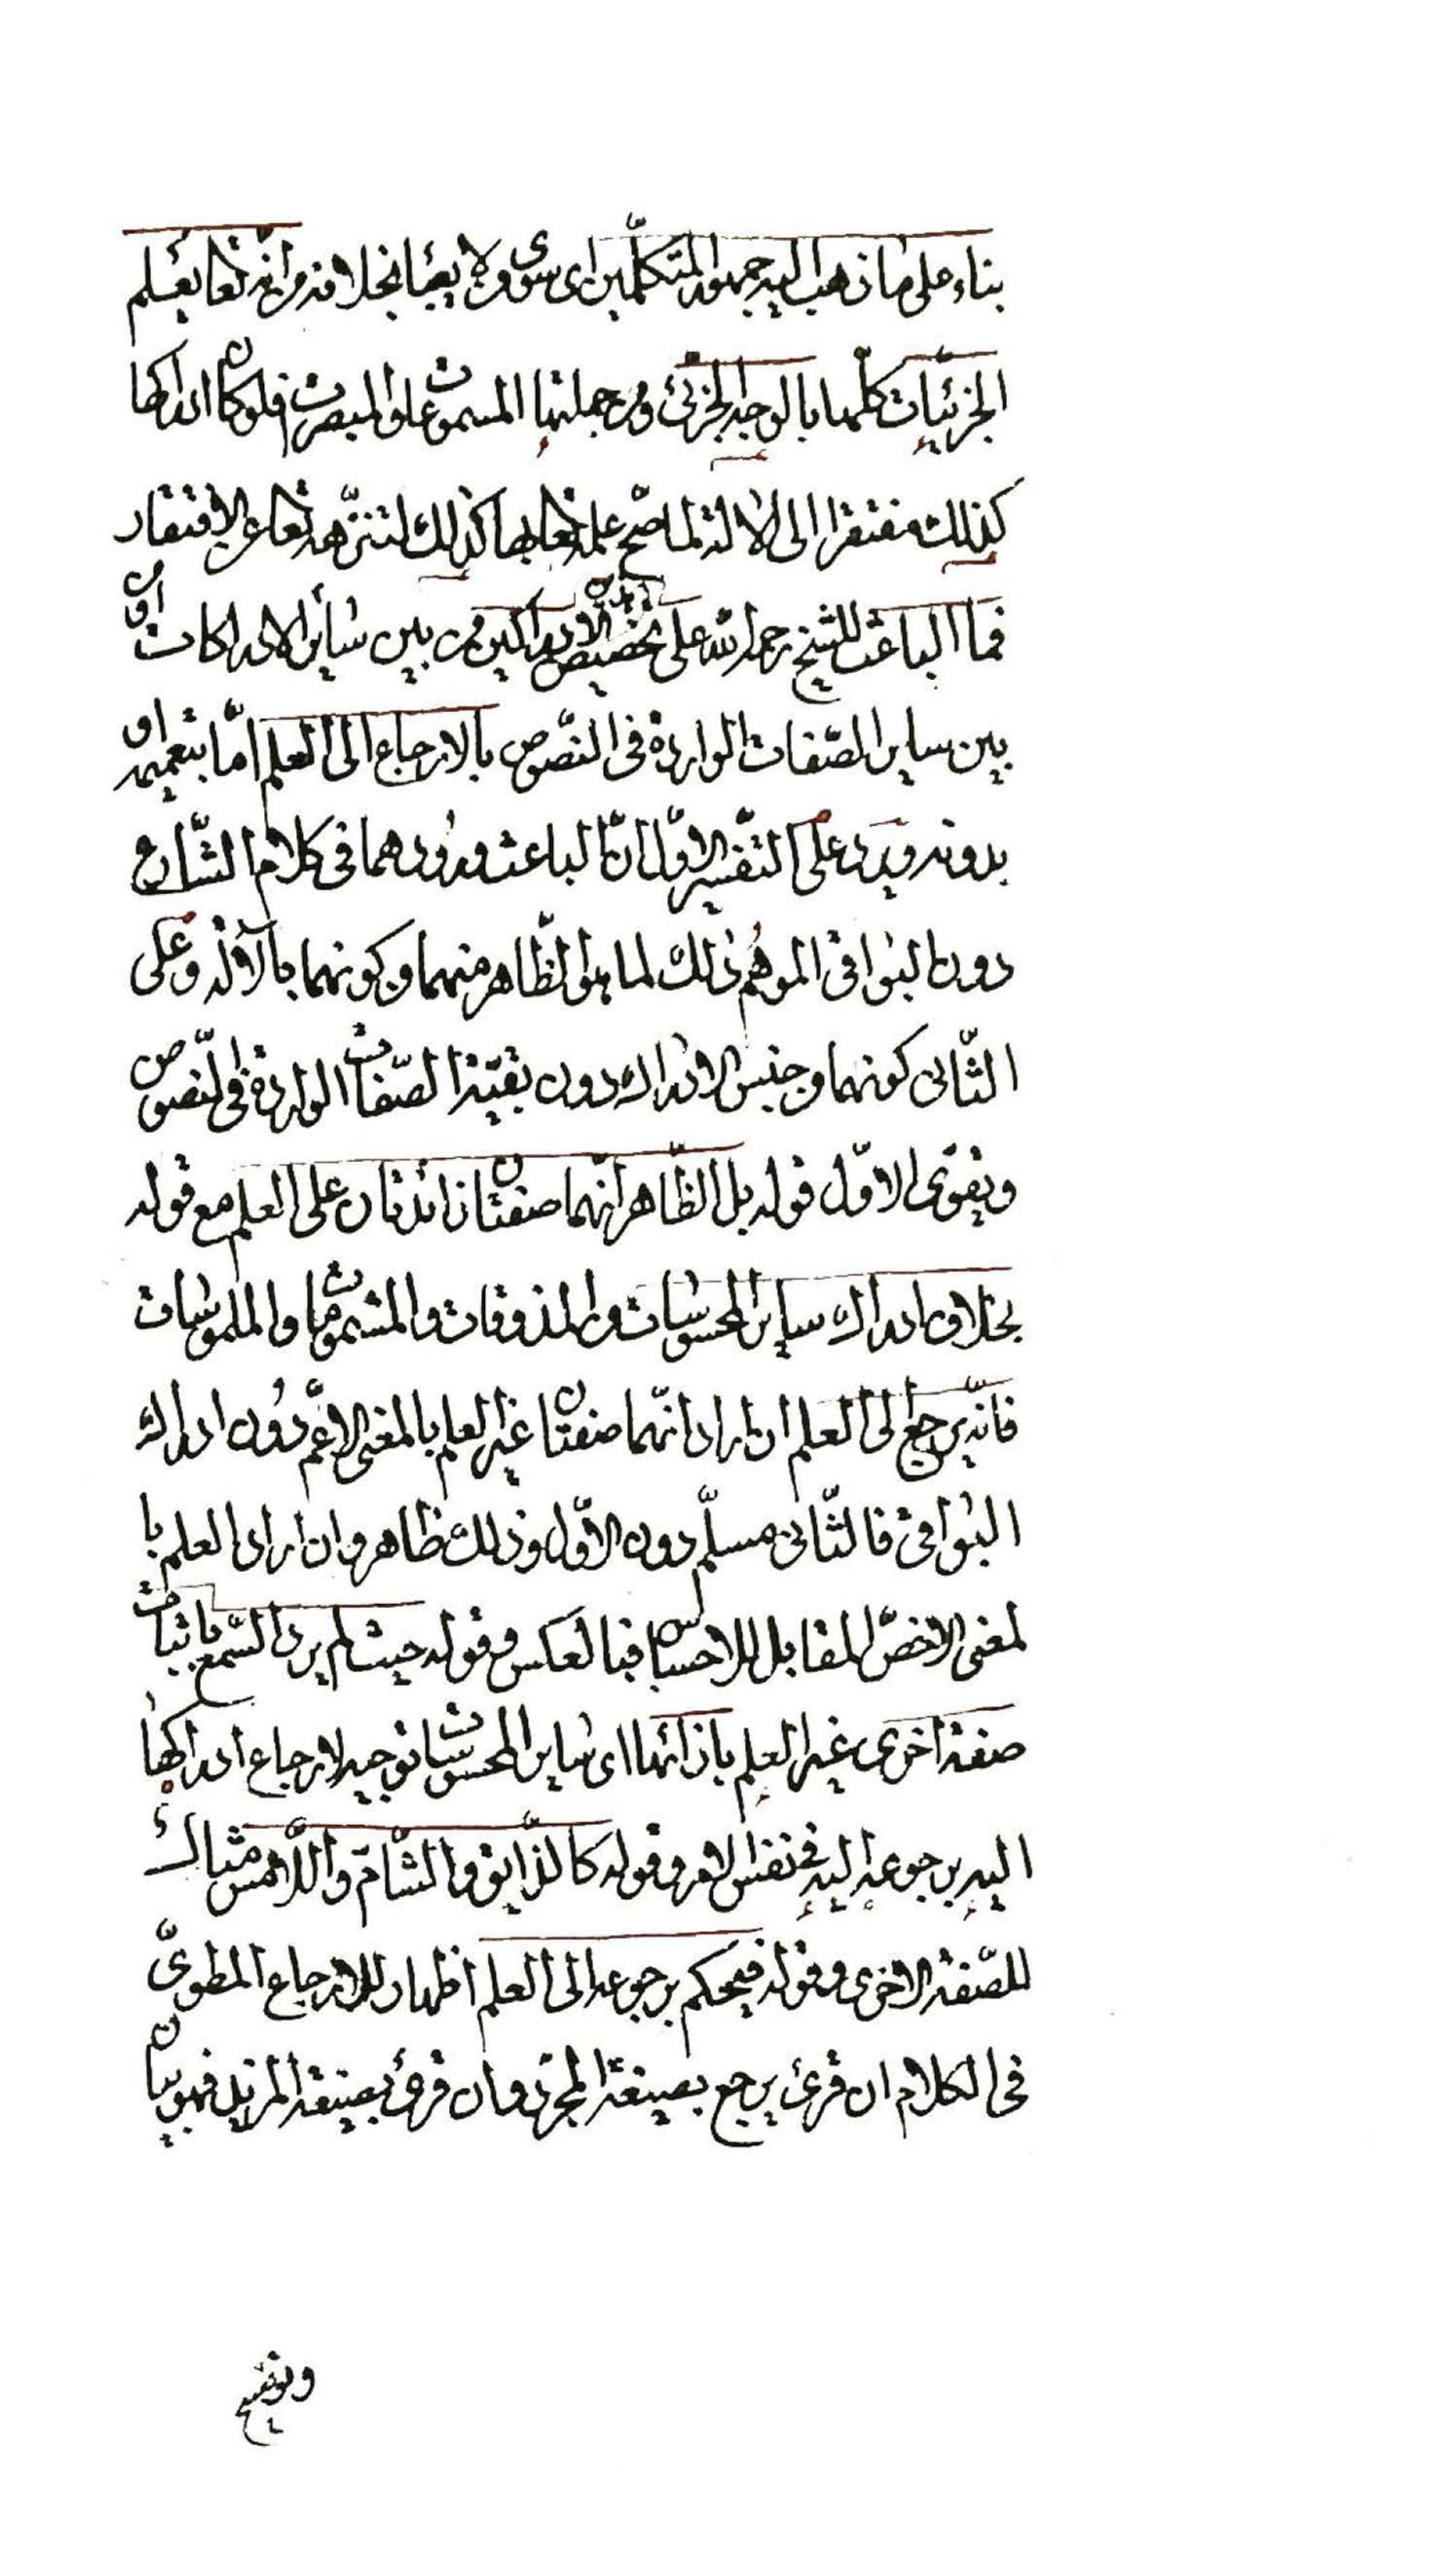 بناء على ما ذهب اليه جمهور المتكلّمين اى سوى ولا يعبأ بخلافه من انه تعا يعلم
الجزئيات كلّها بالوجه الجزئى ومن جملتها المسموعات والمبصرات فلو كان ادراكها
كذلك مفتقرا الى الآلة لما صحّ علمه تعا بها كذلك لتنزّهه تعا عن الافتقار
فما الباعث للشيخ رحمه الله على تخصيص هذين الادراكين من بين سائر الادراكات او
بين ساير الصّفات الواردة فى النّصوص بالارجاع الى العلم امّا بتعميمه او
بدونه ويرد على التفسير الاوّل انّ الباعث ورودهما فى كلام الشّارع
دون البواقى الموهم ذلك لما هو الظّاهر منهما وكونهما بالآلة وعلى
الثّانى كونهما من جنس الادراك دون بقيّة الصّفات الواردة فى النّصوص
ويقوّى الاوّل قوله بل الظّاهر انّهما صفتان زائدتان على العلم مع قوله
بخلاف ادراك ساير المحسوسات من المذوقات والمشمومات والملموسات
فانّه يرجع الى العلم ان اراد انّهما صفتان غير العلم بالمعنى الاعمّ دون ادراك
البواقى فالثّانى مسلّم دون الاوّل وذلك ظاهر وان اراد العلم با
لمعنى الاخصّ المقابل للاحساس فبالعكس وقوله حيث لم يرد السّمع باثبات
صفة اخرى غير العلم بازائها اى ساير المحسوسات توجيه لارجاع ادراكها
اليه برجوعه اليه فى نفس الامر وقوله كالذّايق والشّامّ واللّامس مثال
للصّفة الاخرى وقوله فيحكم برجوعه الى العلم اظهار للارجاع المطوىّ
فى الكلام ان قرئ يرجع بصيغة المجرّد وان قرئ بصيغة المزيد فهو بيان
وتوضيح